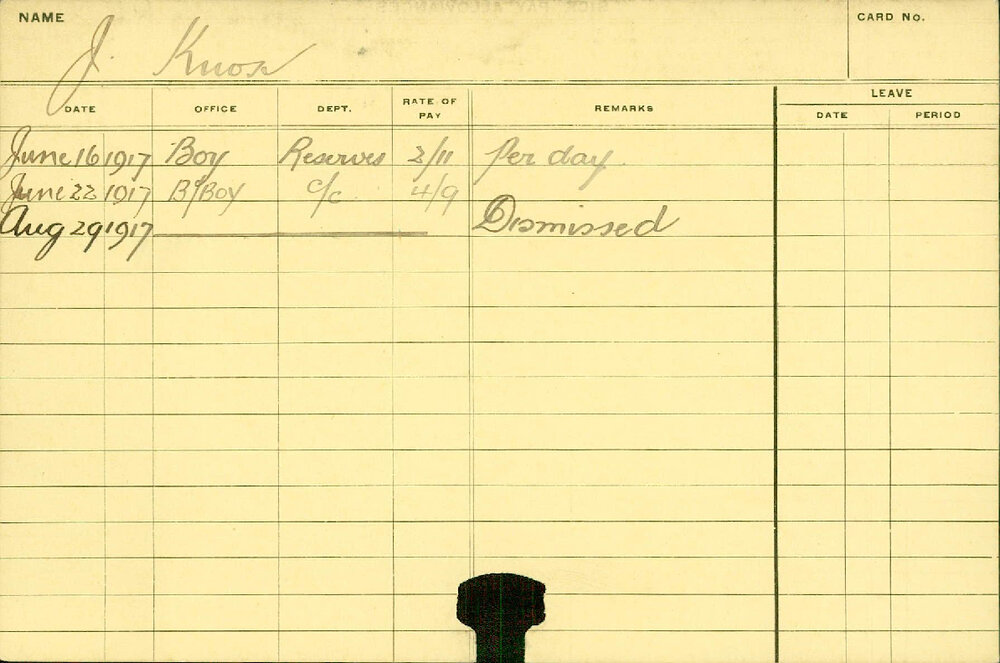 NAME
CARD No.
J. Knox
DATE OFFICE DEPT. RATE OF PAY REMARKS LEAVE
DATE PERIOD
June 16 1917 Boy Reserves 2/11 Per day
June 22 1917 B/Boy c/c 4/9
Aug 29 1917 Dismissed